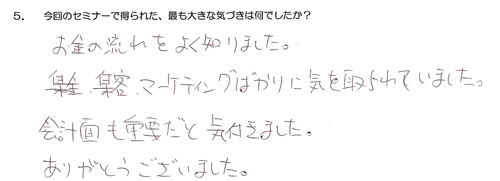 5. 今回のセミナーで得られた、最も大きな気づきは何でしたか？
お金の流れをよく知りました。
集金、集客、マーケティングばかりに気を取られていました。
会計面も重要だと気付きました。
ありがとうございました。